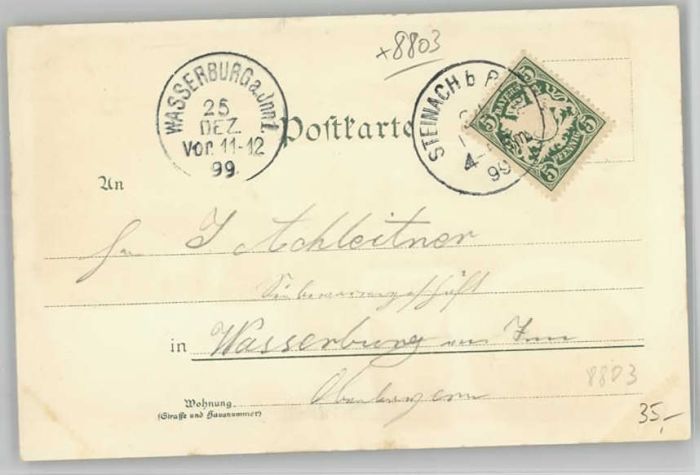 x8803
WASSERBURG a. Inn 1.
25
DEZ.
Vor. 11-12
99.
STEINACH b
4-
99
BAYERN
5
5
5
PFENNIG
Postkarte
An
J Achleitner
in Wasserburg am Inn
Oberbayern
8803
Wohnung
(Straße und Hausnummer)
35,-